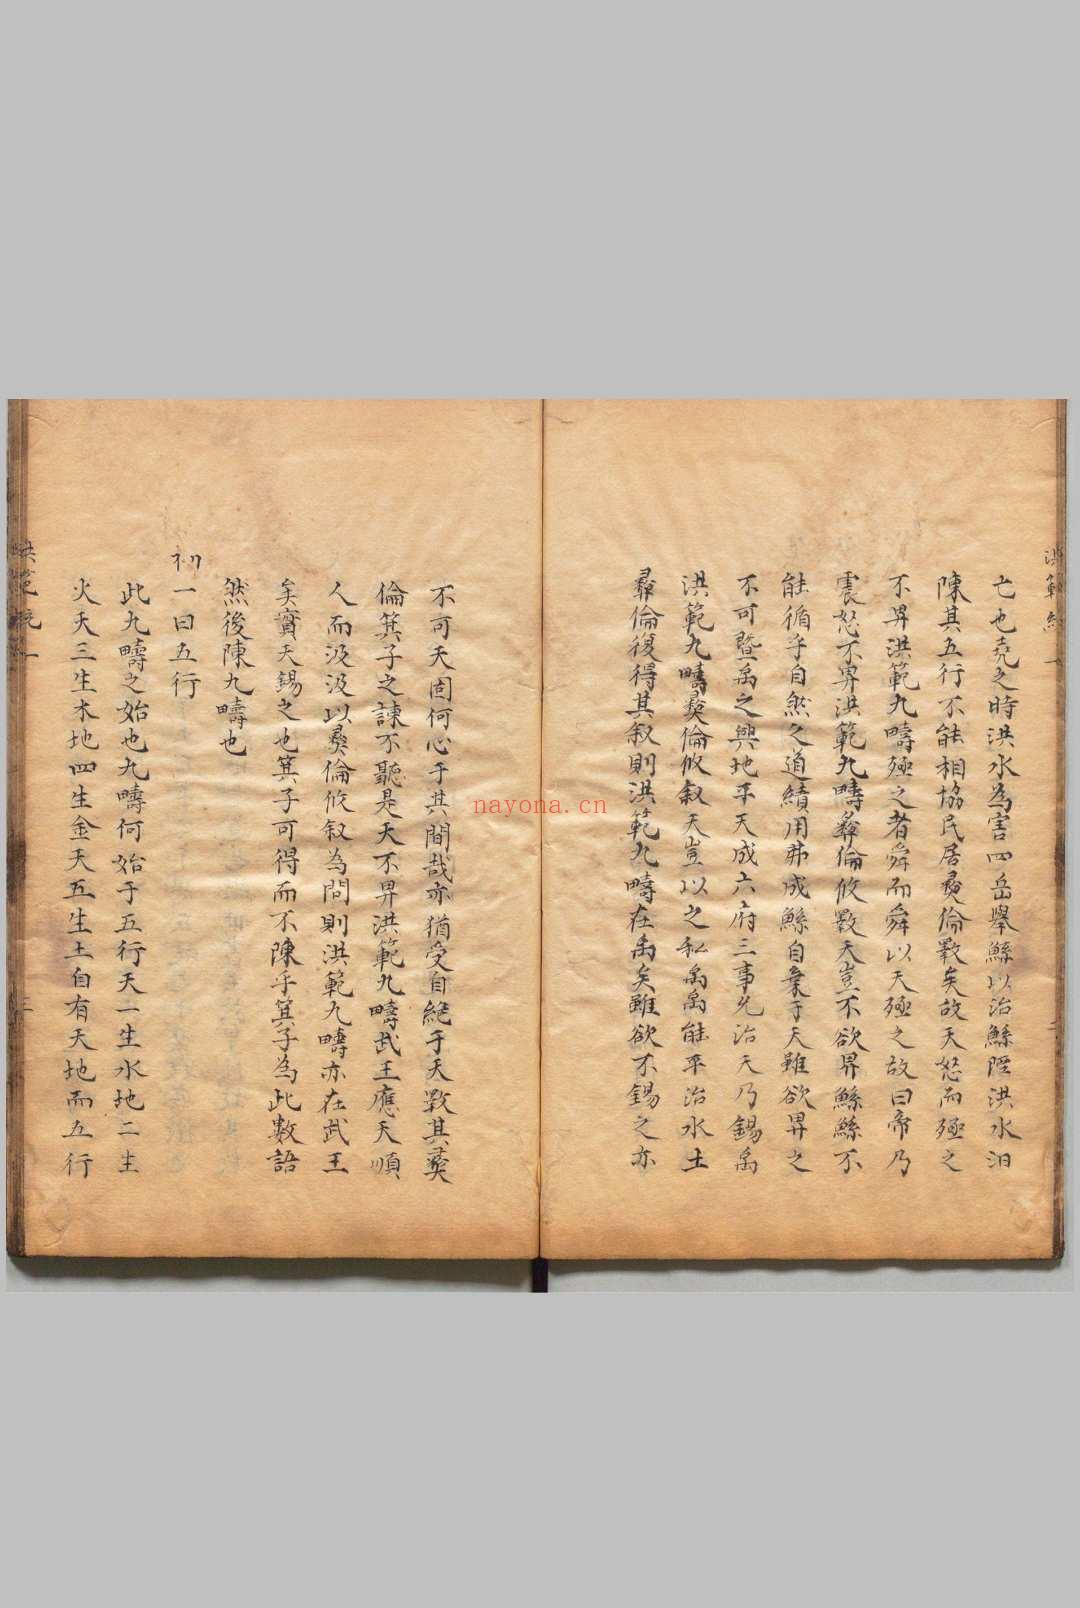 洪範統一
亡也堯之時洪水為害四岳舉鯀以治鯀陻洪水汩
陳其五行不能相協民居彝倫斁矣故天怒而殛之
不畀洪範九疇殛之者舜而舜以天殛之故曰帝乃
震怒不畀洪範九疇彝倫攸斁天豈不欲畀鯀鯀不
能循乎自然之道績用弗成鯀自棄于天雖欲畀之
不可曁禹之興地平天成六府三事允治天乃錫禹
洪範九疇彝倫攸叙天豈以之私禹禹能平治水土
彝倫復得其叙則洪範九疇在禹矣雖欲不錫之亦
不可天固何心于其間哉亦猶受自絶于天斁其彝
倫箕子之諫不聽是天不畀洪範九疇武王應天順
人而汲汲以彝倫攸叙為問則洪範九疇亦在武王
矣實天錫之也箕子可得而不陳乎箕子為此數語
然後陳九疇也
初一曰五行
此九疇之始也九疇何始于五行天一生水地二生
火天三生木地四生金天五生土自有天地而五行
洪範統一
nayona.cn